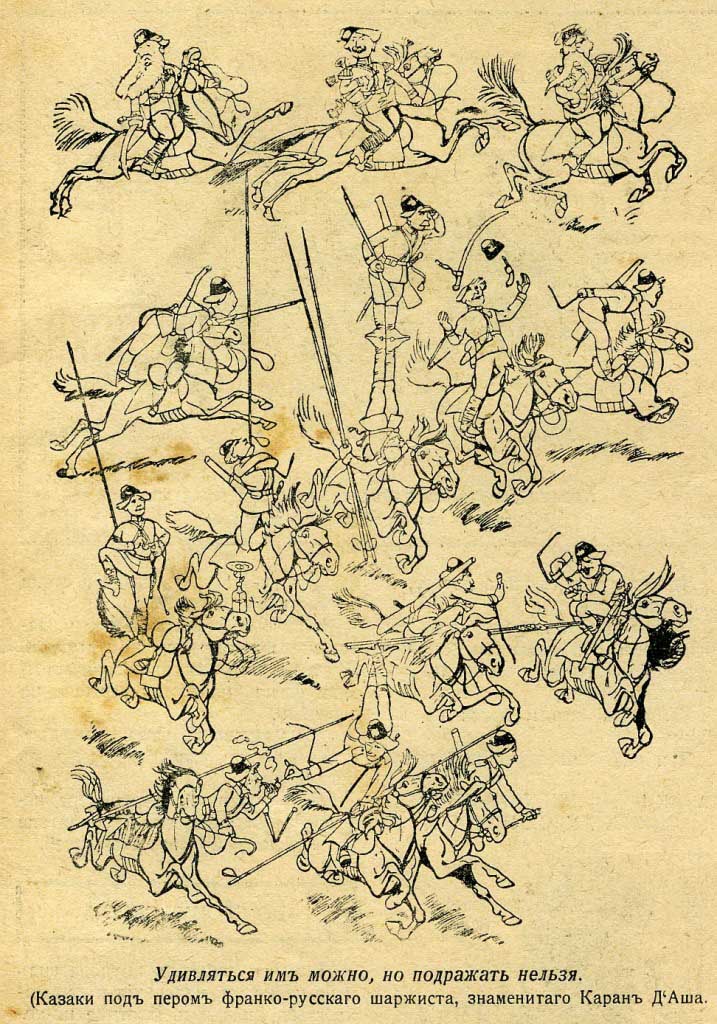 Удивляться имъ можно, но подражать нельзя.
(Казаки подъ перомъ франко-русскаго шаржиста, знаменитаго Каранъ Д‘Аша.